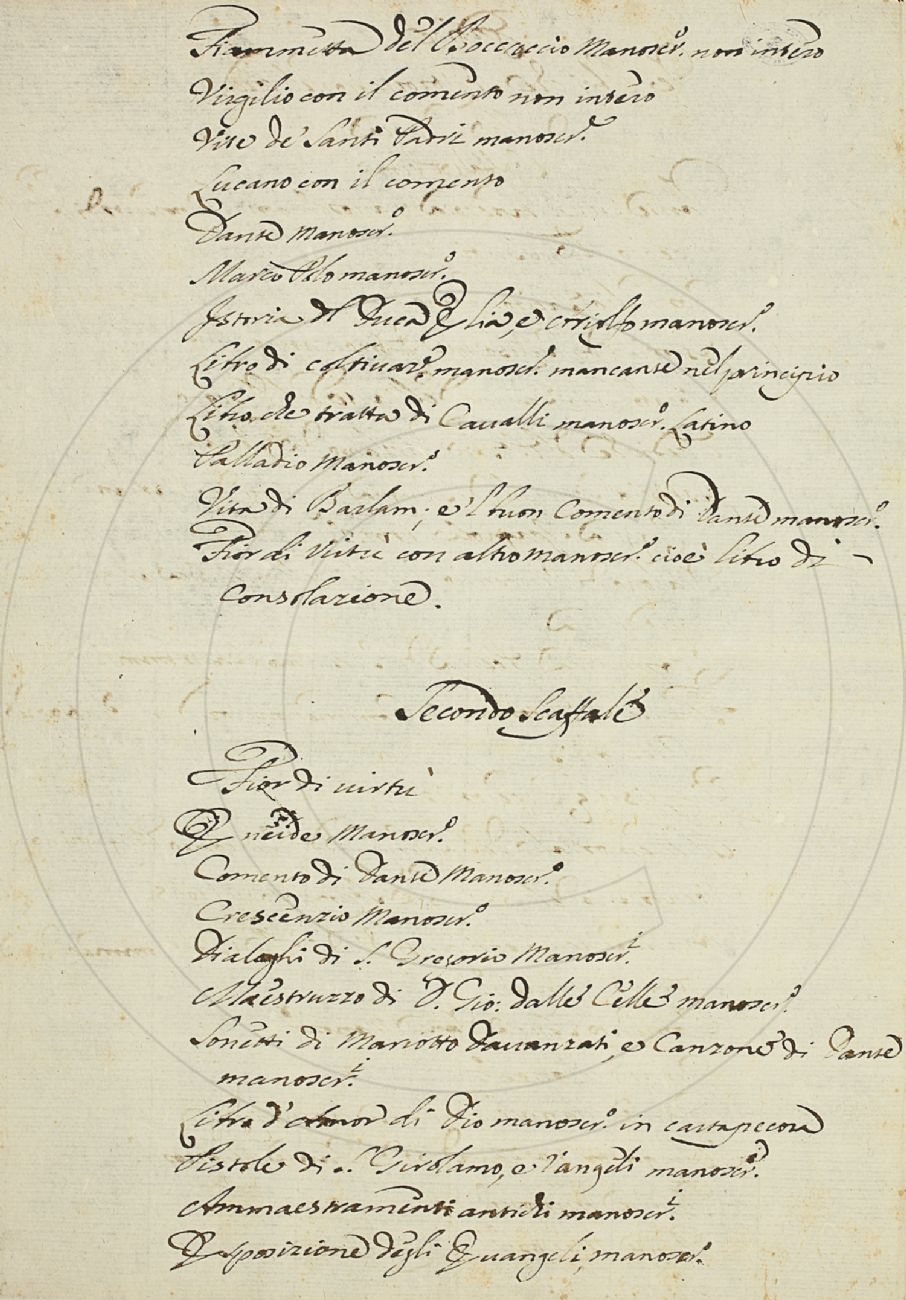 Fiammetta del Boccaccio Manoscr.º non intero
Virgilio con il comento non intero
Vite de Santi Padri manoscr.e
Lucano con il comento
Dante Manoscr.º
Marco Polo manoscr.º
Istoria del Duca Elia, e manoscr.º
Libro di coltivar.e manoscr.º mancante nel principio
Libro che tratta di Cavalli manoscr.º Latino
Palladio Manoscr.º
Vita di Barlam, e'l buon Comento di Dante manoscr.º
Fior di Virtù con altro manoscr.º cioè libro di
Consolazione.
Secondo Scaffale
Fior di virtù
Eneide Manoscr.º
Comento di Dante Manoscr.º
Crescenzio Manoscr.º
Dialoghi di S. Gregorio Manoscr.i
Maestruzzo di D. Gio: dalle Celle manoscr.º
Sonetti di Mariotto Davanzati, e Canzone di Dante
manoscr.i
Libro d'Amor di Dio manoscr.º in cartapecora
Pistole di S. Girolamo, e Vangeli manoscr.i
Ammaestramenti antichi manoscr.i
Esposizione degli Evangeli, manoscr.º